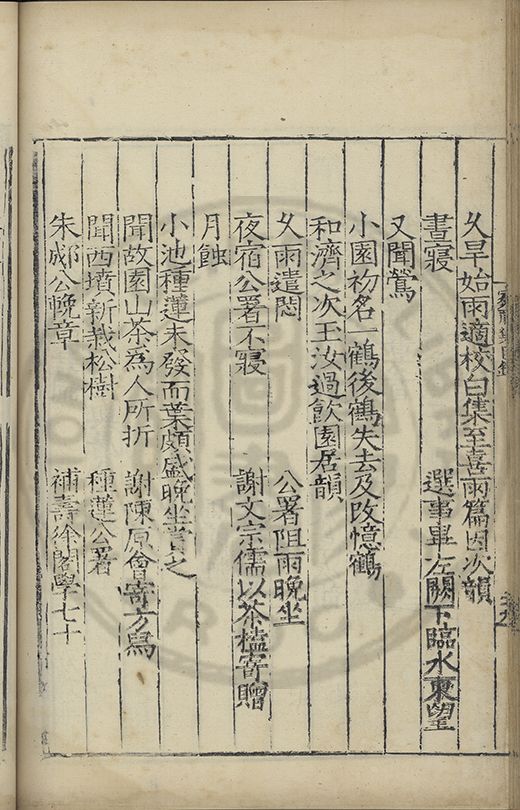 久旱始雨適校白集至喜雨篇因次韻
晝寢　選事畢左闕下臨水東望
又聞鶯
小園初名一鶴後鶴失去及改憶鶴
和濟之次王汝過飲園居韻
久雨遣悶　公署阻雨晚坐
夜宿公署不寢　謝文宗儒以茶榼寄贈
月蝕
小池種蓮未發而葉頗盛晚坐賞之
聞故園山茶為人所折　謝陳原會寄方舄
聞西墳新栽松樹　種蓮公署
朱郕公輓章　補壽徐閣學七十